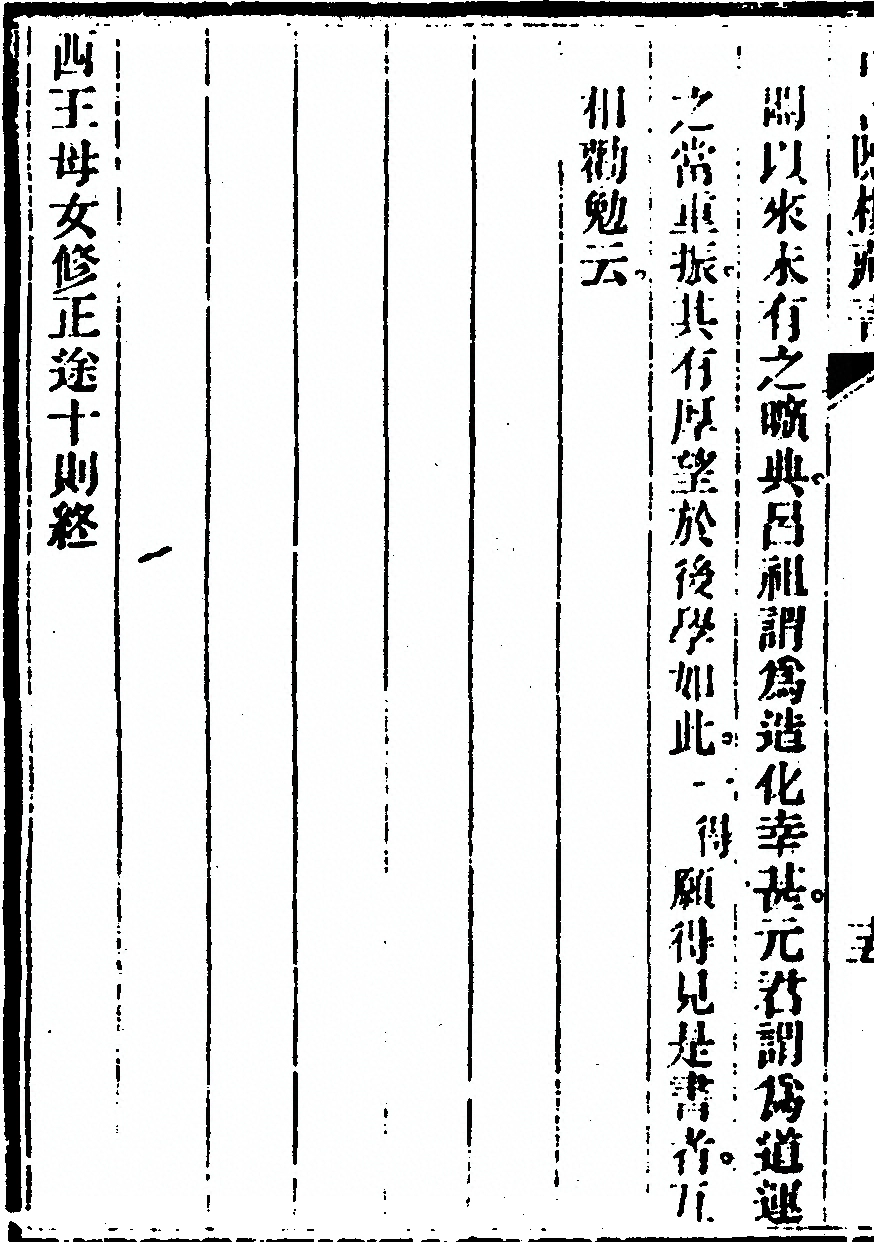 闢以來未有之曠典。呂祖謂爲造化幸甚。元君謂爲道運
之當重振。其有厚望於後學如此。一得願得見是書者。互
相勸勉云。
西王母女修正途十則終